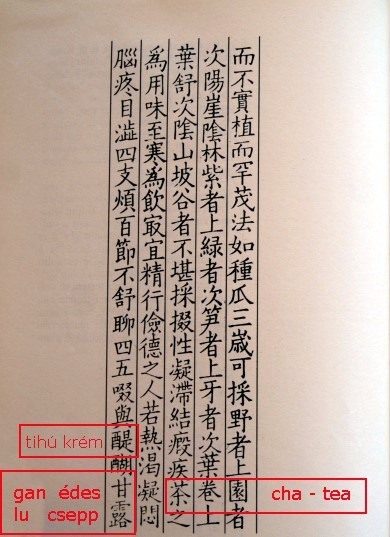 而不實植而罕茂法如種瓜三歳可採野者上園者
次陽崖陰林紫者上綠者次笋者上牙者次葉卷上
葉舒次陰山坡谷者不堪採掇性凝滯結瘕疾茶之
爲用味至寒爲飲㝡宜精行儉德之人若熱渴凝悶
腦疼目澁四支煩百節不舒聊四五啜與醍醐甘露
tihú krém
gan édes
lu csepp
cha - tea